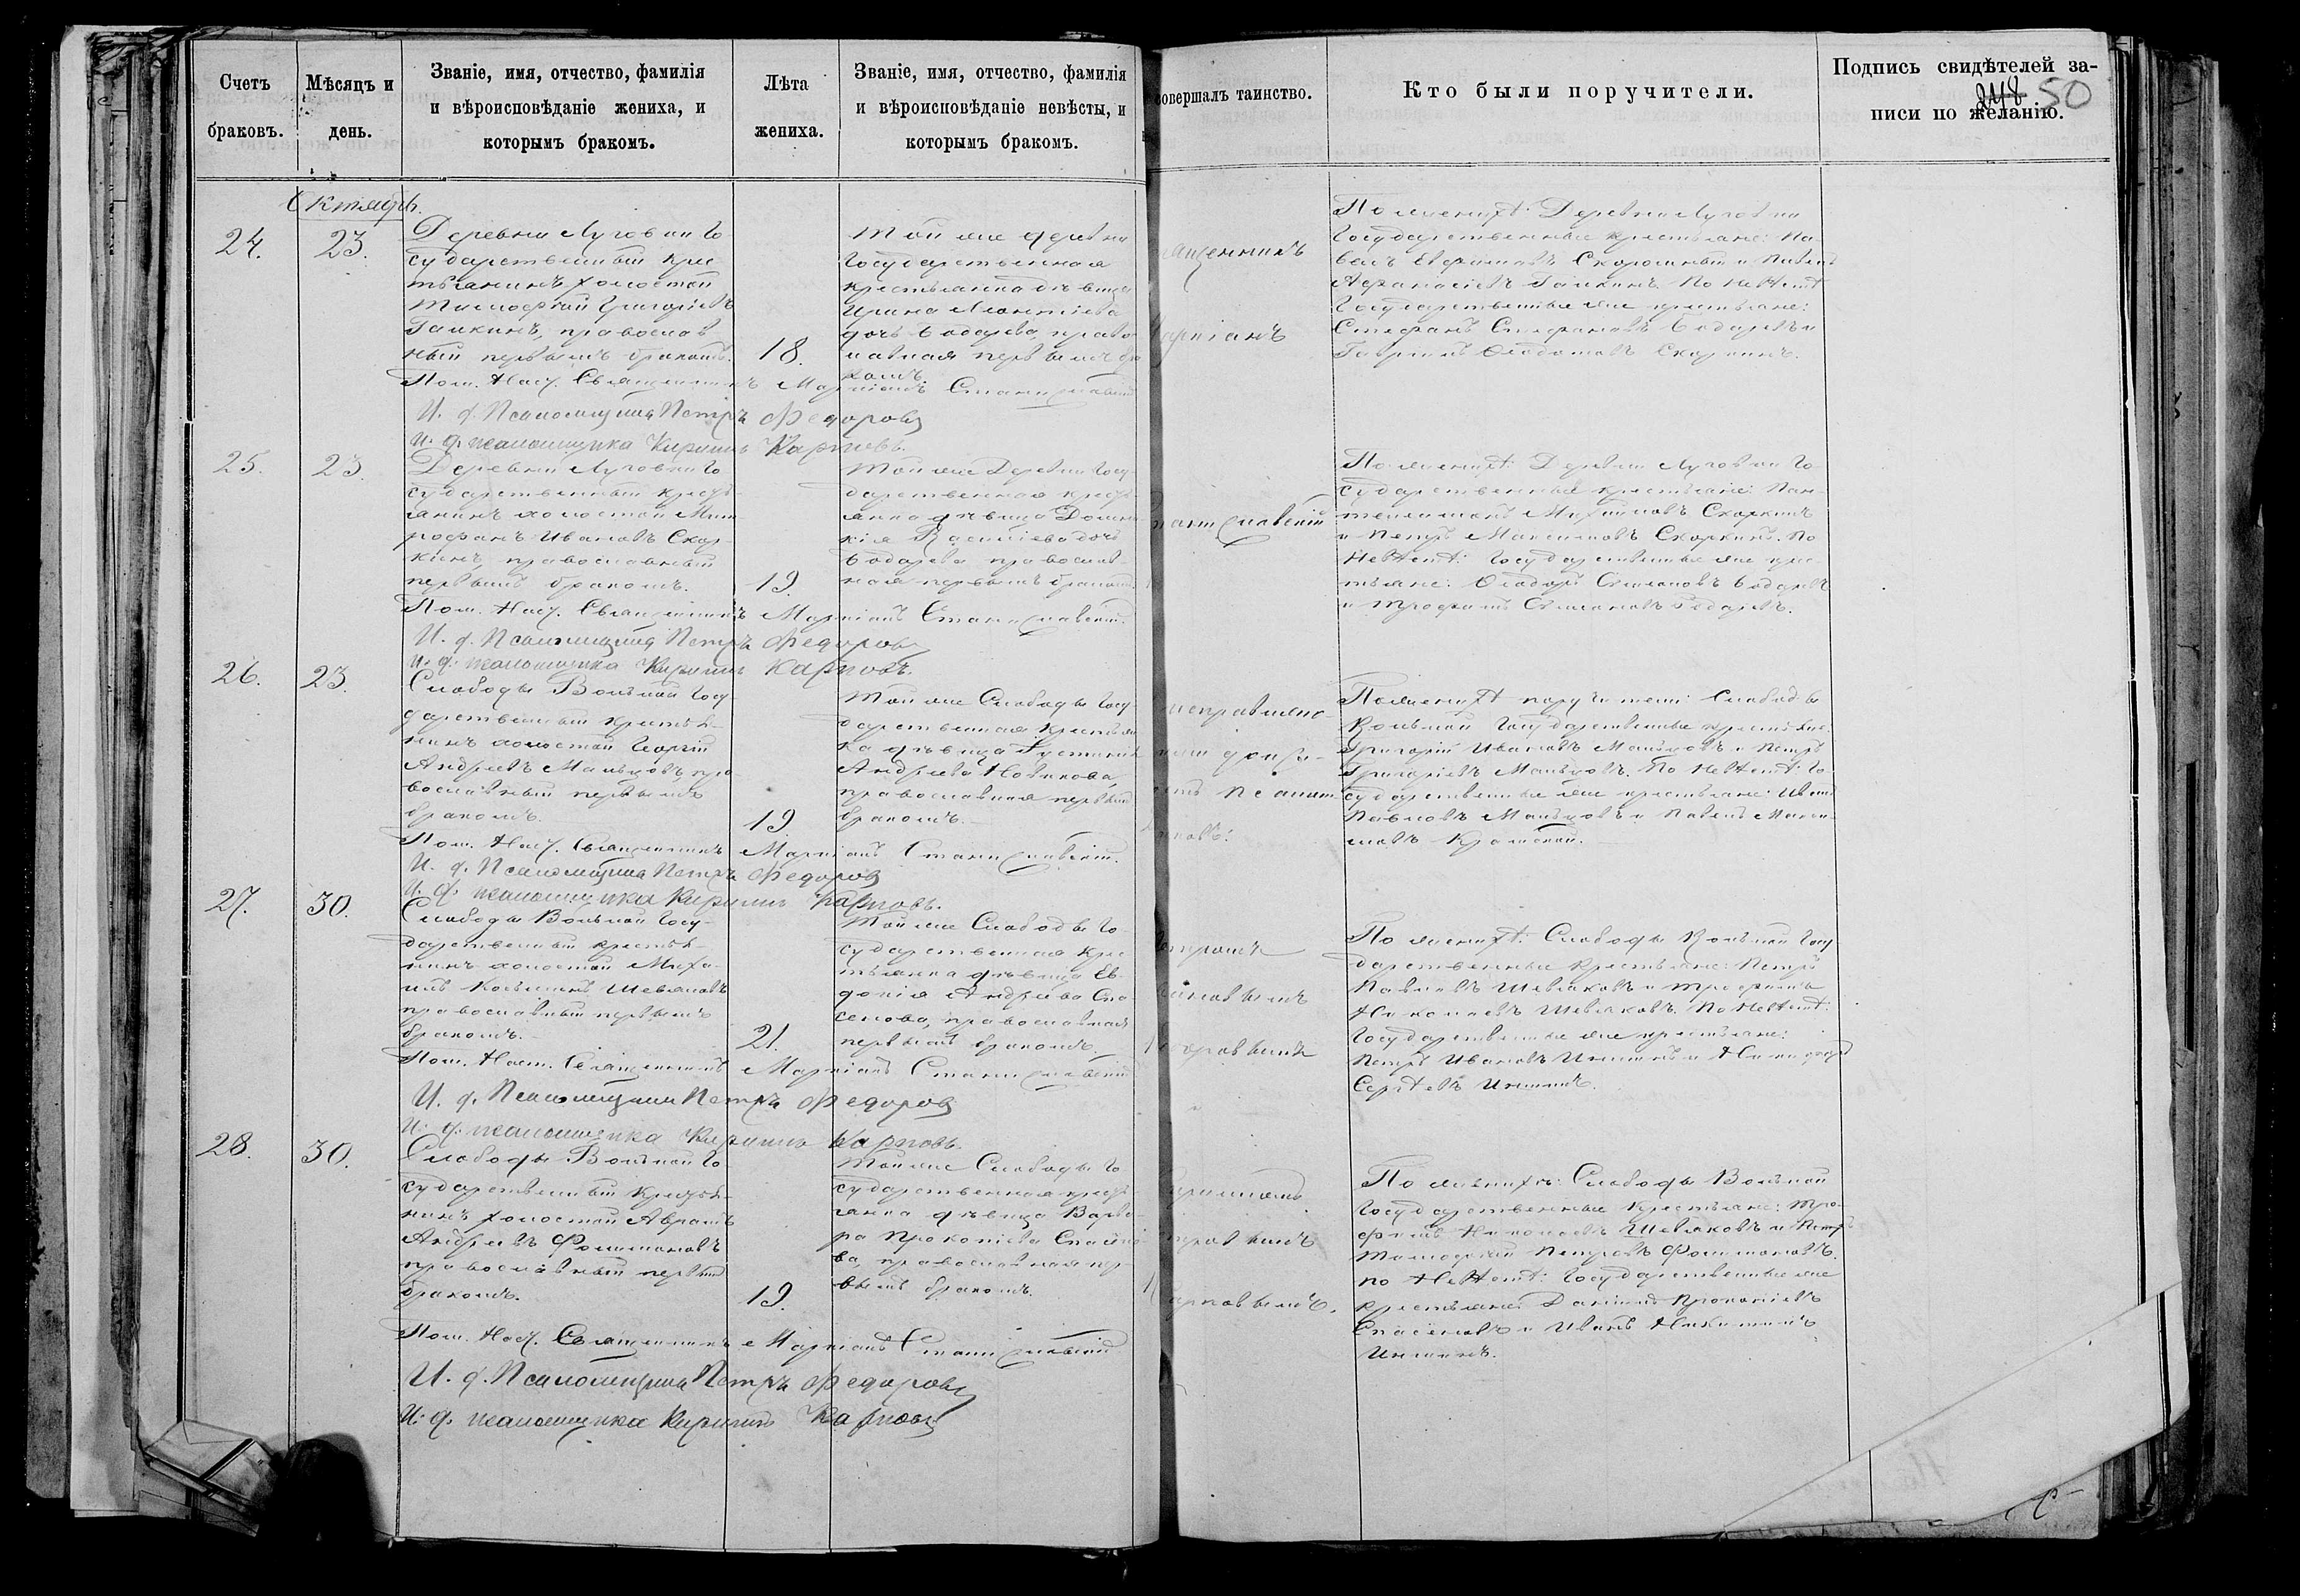 Счетъ браковъ.
Мѣсяцъ и день.
Званіе, имя, отчество, фамилія и вѣроисповѣданіе жениха, и которымъ бракомъ.
Лѣта жениха.
Званіе, имя, отчество, фамилія и вѣроисповѣданіе невѣсты, и которымъ бракомъ.
совершалъ таинство.
Кто были поручители.
Подпись свидѣтелей записи по желанію.
50
Октябрь.
24.
23.
Деревни Луговки Го-
сударственный крес-
тьянинъ холостой
Тимофей Григоріевъ
Галкинъ, православ
ный первымъ бракомъ.
18.
Той же деревни
Государственная
крестьянка дѣвица
Ирина Леонтіева
дочь Бодарева, право
славная первымъ бра
комъ.
Священникъ
По женихѣ: Деревни Луговки
Государственные крестьяне: Па-
велъ
и Павелъ
Афанасіевъ Галкинъ. По невѣстѣ
Государственные же крестьяне:
Стефанъ Стефановъ Бодаревъ и
Скоркинъ.
Пом. Наст. Священникъ Маркіанъ Станиславскій
И. д. Псаломщика Петръ Федоровъ
И. д. псаломщика Кириллъ Карповъ.
25.
23.
Деревни Луговки Го
сударственный кресть-
янинъ холостой Мит
рофанъ Ивановъ Скор-
кинъ, православный
первымъ бракомъ.
19.
Той же Деревни Госу
дарственная кресть-
янка дѣвица Домни
кія Васильева дочь
Бодарева православ-
ная первымъ бракомъ.
По женихѣ: Деревни Луговки Го
сударственные крестьяне: Пан-
телеимонъ
Скоркинъ
и Петръ Максимовъ Скоркинъ. По
невѣстѣ: Государственные же крес-
тьяне:
Бодаревъ
и Трофимъ
Бодаревъ.
Пом. Наст. Священникъ Маркіанъ Станиславскій.
И. д. Псаломщика Петръ Федоровъ
И. д. псаломщика Кириллъ Карповъ.
26.
23.
Слободы Вольной Госу-
дарственный крестья-
нинъ холостой Георгій
Андреевъ Мальцовъ, пра
вославный первымъ
бракомъ.
19.
Той же Слободы Госу-
дарственная крестьян
ка дѣвица Іустинія
Андреева Новикова,
православная первымъ
бракомъ.
По женихѣ поручители: Слободы
Вольной Государственные крестьяне:
Григорій Ивановъ Мальцовъ и Петръ
Григоріевъ Мальцовъ. По невѣстѣ: Го-
сударственные же крестьяне: Иванъ
Павловъ Мальцовъ и Павелъ
Пом. Наст. Священникъ Маркіанъ Станиславскій.
И. д. Псаломщика Петръ Федоровъ
И. д. псаломщика Кириллъ Карповъ.
27.
30.
Слободы Вольной Госу-
дарственный крестья-
нинъ холостой Миха-
илъ Косьминъ Шевляковъ
православный первымъ
бракомъ.
21.
Той же Слободы Го-
сударственная крес-
тьянка дѣвица Ев-
докія Андреева Спа-
сенова, православная
первымъ бракомъ.
Петромъ
По женихѣ: Слободы Вольной Госу
дарственные крестьяне: Петръ
Павловъ Шевляковъ и Трофимъ
Николаевъ Шевляковъ. По невѣстѣ:
Государственные же крестьяне:
Петръ Ивановъ Иншинъ и
Сергѣевъ Иншинъ.
Пом. Наст. Священникъ Маркіанъ Станиславскій
И. д. Псаломщика Петръ Федоровъ
И. д. псаломщика Кириллъ Карповъ.
28.
30.
Слободы Вольной Го
сударственный крестья-
нинъ холостой Аврамъ
Андреевъ Филимоновъ
православный первымъ
бракомъ.
19.
Той же Слободы Го
сударственная кресть-
янка дѣвица Варва-
ра Прокопіева Спасено-
ва, православная пер-
вымъ бракомъ.
Кирилломъ
Карповымъ.
По женихѣ: Слободы Вольной
Государственные крестьяне: Тро-
фимъ Николаевъ Шевляковъ и
Тимофей Петровъ Филимоновъ.
по невѣстѣ: Государственные же
крестьяне: Даніилъ Прокопіевъ
Спасеновъ и Иванъ Никитинъ
Иншинъ.
Пом. Наст. Священникъ Маркіанъ Станиславскій
И. д. Псаломщика Петръ Федоровъ
И. д. псаломщика Кириллъ Карповъ